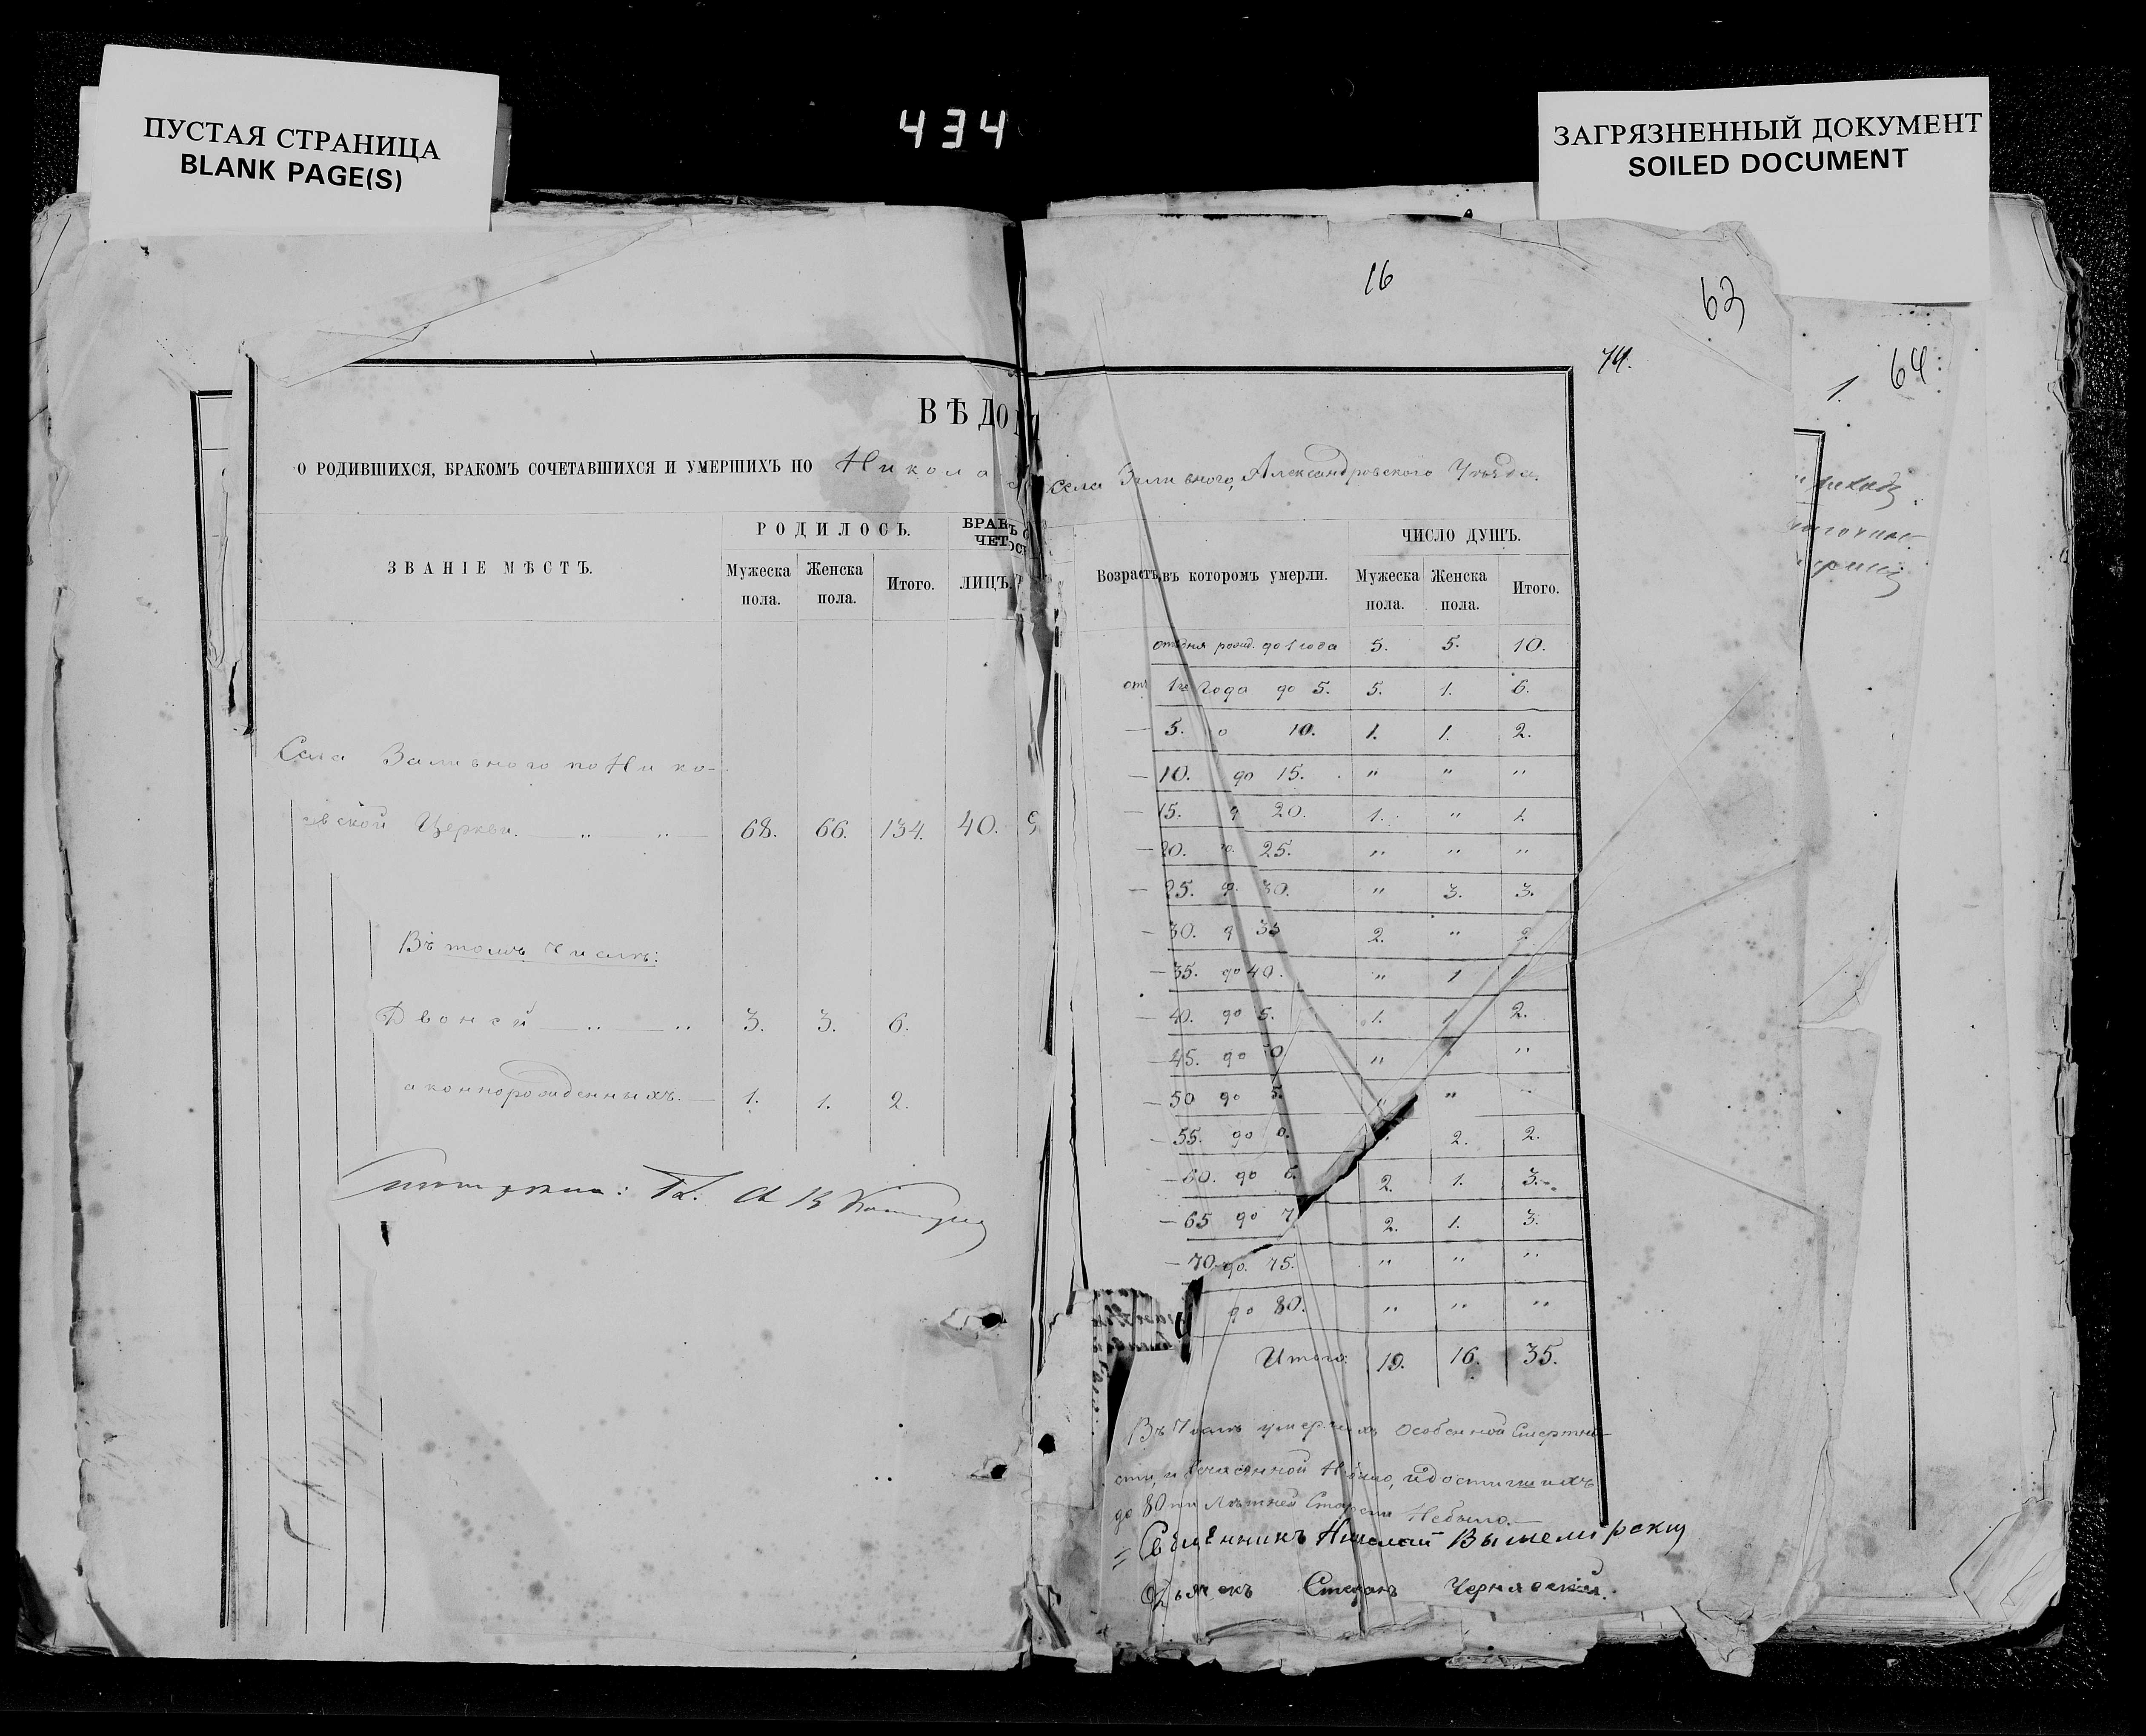 ПУСТАЯ СТРАНИЦА
BLANK PAGE(S)
434
ЗАГРЯЗНЕННЫЙ ДОКУМЕНТ
SOILED DOCUMENT
16
63
74.
64
1.
ВѢДО
О РОДИВШИХСЯ, БРАКОМЪ СОЧЕТАВШИХСЯ И УМЕРШИХЪ ПО Никола
села Заливного, Александровского Уѣзда.
ЗВАНІЕ МѢСТЪ.
РОДИЛОСЬ.
Мужеска пола.
Женска пола.
Итого.
БРАКЪ
ЧЕТ
ЛИЦЪ.
Села Заливного по Нико-
евской Церкви. — „ — „ — 68. 66. 134. 40.
Въ томъ числѣ:
Двоней — „ — „ 3. 3. 6.
аконнорожденныхъ. — 1. 1. 2.
Возрастъ, въ которомъ умерли.
ЧИСЛО ДУШЪ.
Мужеска пола.
Женска пола.
Итого.
отъ дня рожд. до 1 года 5. 5. 10.
отъ 1го года до 5. 5. 1. 6.
— 5. 10. 1. 1. 2.
— 10. до 15. „ „ „
— 15. 20. 1. „ 1.
— 20. 25. „ „ „
— 25. 30. „ 3. 3.
— 30. 35 2. „ 2
— 35. до 40. „ 1
— 40. до 5. 1. 1 2.
— 45. до 0 „ „
— 50 до 5. „ „ „
— 55. до 0. 2. 2.
— 60. до 6. 2. 1. 3.
— 65 до 7 2. 1. 3.
— 70. до. 75. „ „ „
до 80. „ „ „
Итого: 19. 16. 35.
Въ числѣ умершихъ особенной смертно-
сти, и небыло, и достигшихъ
до 80ти лѣтней старости небыло.—
Священникъ Николай
Дьячекъ Стефанъ Чернявский.